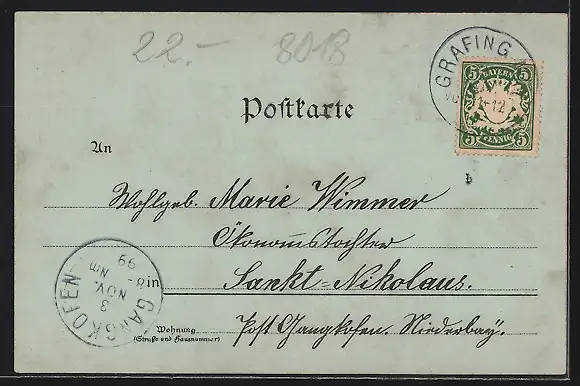 22.- 8018
GRAFING
5 BAYERN 5
5 PFENNIG 5
Postkarte
An
Wohlgeb. Marie Wimmer
Ökonomstochter
in Sankt=Nikolaus.
GANGKOFEN
3 NOV. Nm 8- 99
Wohnung
(Straße und Hausnummer)
Post Gangkofen. Niederbay.